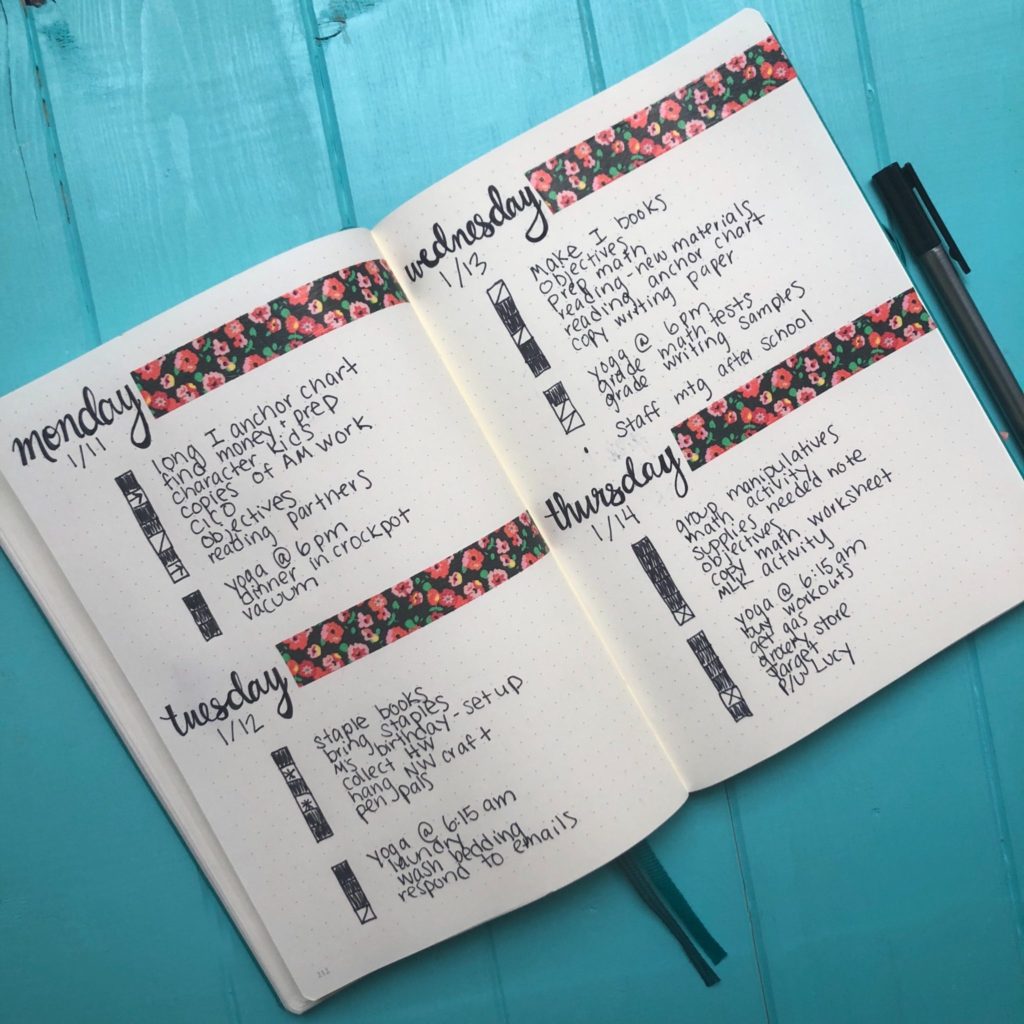 monday
1/11
long I anchor chart
find money + prep
character kids
copies of AM work
CICO
objectives
reading partners
yoga @ 6pm
dinner in crockpot
vacuum
tuesday
1/12
staple books
bring staples
M's birthday - set up
collect HW
hang NW craft
pen pals
yoga @ 6:15 am
laundry
wash bedding
respond to emails
212
wednesday
1/13
make I books
objectives
prep math
reading - new materials
reading anchor chart
copy writing paper
yoga @ 6pm
grade math tests
grade writing samples
staff mtg after school
thursday
1/14
group manipulatives
math activity
supplies needed note
objectives
copy math worksheet
MLK activity
yoga @ 6:15 am
buy workouts
get gas
grocery store
target
p/u Lucy